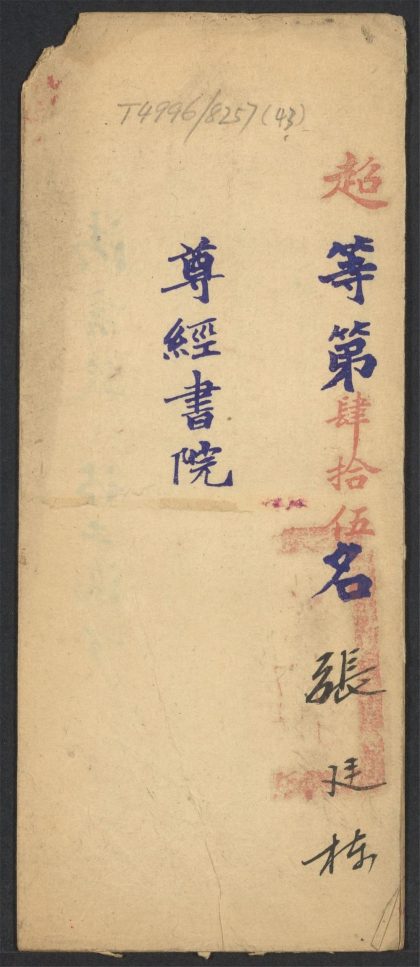 T4996/8257(43)
超等第肆拾伍名張廷栋
尊經書院